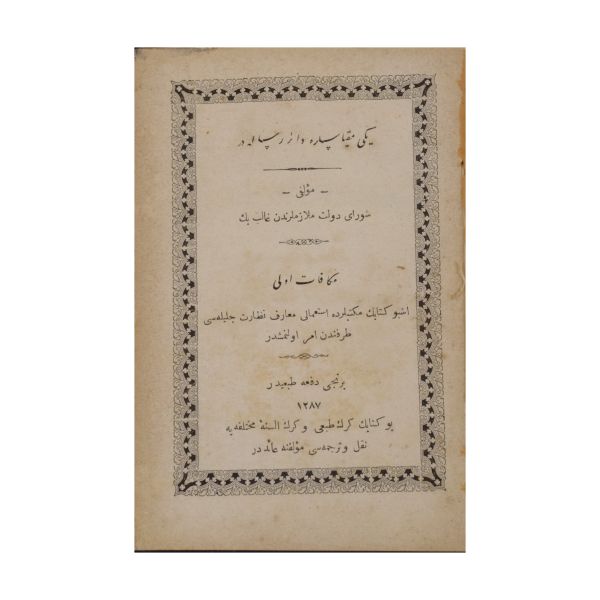 یکی مقیاسلره دائر رساله در
- مؤلفی -
شورای دولت ملازملرندن غالب بك
مکافات اولی
اشبو کتابك مکتبلرده استعمالی معارف نظارت جلیله‌سی
طرفندن امر اولنمشدر
برنجی دفعه طبعیدر
۱۲۸۷
بو کتابك کرك طبعی و کرك السنهٔ مختلفه‌یه
نقل و ترجمه‌سی مؤلفنه عائد در